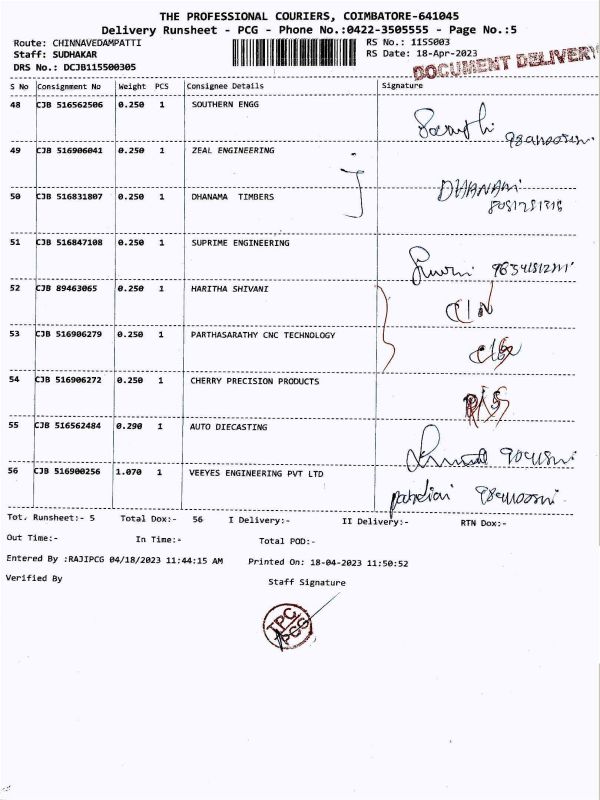 THE PROFESSIONAL COURIERS, COIMBATORE-641045
Delivery Runsheet - PCG - Phone No.:0422-3505555 - Page No.:5
Route: CHINNAVEDAMPATTI RS No.: 1155003
Staff: SUDHAKAR RS Date: 18-Apr-2023
DRS No.: DCJB115500305
DOCUMENT DELIVERY
S No Consignment No Weight PCS Consignee Details Signature
48 CJB 516562506 0.250 1 SOUTHERN ENGG
49 CJB 516906041 0.250 1 ZEAL ENGINEERING
50 CJB 516831807 0.250 1 DHANAMA TIMBERS
51 CJB 516847108 0.250 1 SUPRIME ENGINEERING
52 CJB 89463065 0.250 1 HARITHA SHIVANI
53 CJB 516906279 0.250 1 PARTHASARATHY CNC TECHNOLOGY
54 CJB 516906272 0.250 1 CHERRY PRECISION PRODUCTS
55 CJB 516562484 0.290 1 AUTO DIECASTING
56 CJB 516900256 1.070 1 VEEYES ENGINEERING PVT LTD
Tot. Runsheet:- 5 Total Dox:- 56 I Delivery:- II Delivery:- RTN Dox:-
Out Time:- In Time:- Total POD:-
Entered By :RAJIPCG 04/18/2023 11:44:15 AM Printed On: 18-04-2023 11:50:52
Verified By Staff Signature
TPC
PCG